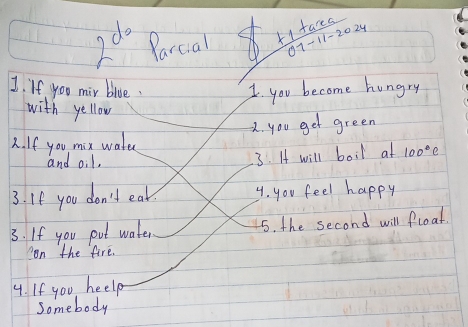 2do Parcial 8 +1 tarea
07-11-2024
1. If you mix blue
with yellow
1. you become hungry
2. you get green
2. If you mix water
and oil.
3. It will boil at 100°c
3. If you don't eat.
4. you feel happy
3. If you put water
on the fire.
5. the second will float.
4. If you heelp
Somebody